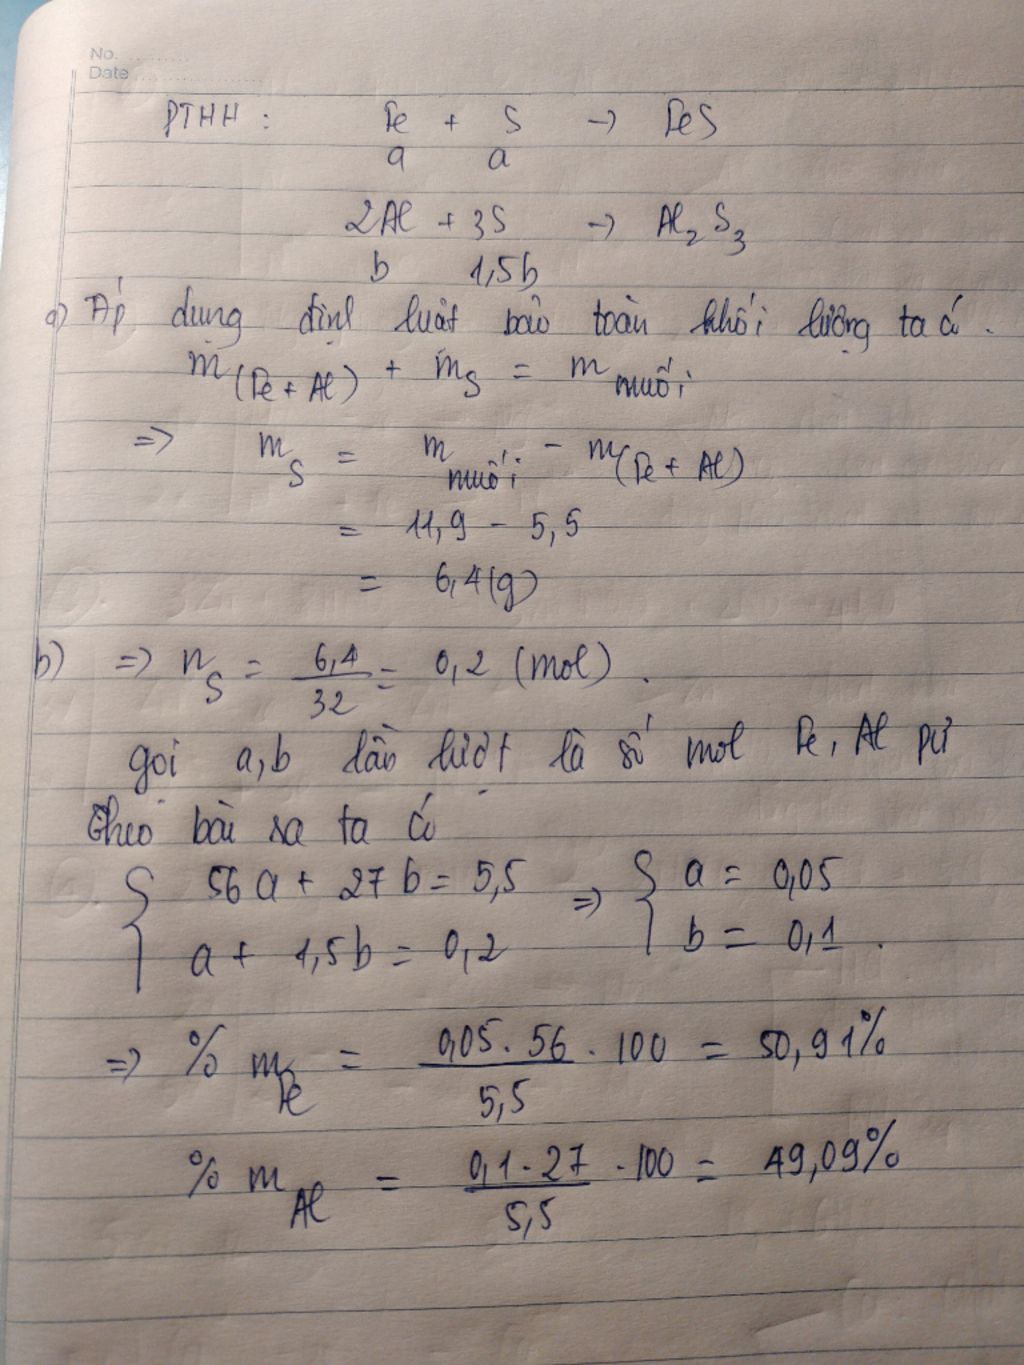 No.
Date
PTHH : Fe + S → FeS
a a
2Al + 3S → Al₂S₃
b 1,5b
a) Áp dụng định luật bảo toàn khối lượng ta có.
m(Fe + Al) + mS = m muối
=> mS = m muối - m(Fe + Al)
= 11,9 - 5,5
= 6,4(g)
b) => nS = 6,4/32 = 0,2 (mol).
gọi a,b lần lượt là số mol Fe, Al pứ
theo bài ra ta có
{ 56a + 27b = 5,5 => { a = 0,05
a + 1,5b = 0,2 b = 0,1.
=> % mFe = 0,05.56/5,5 . 100 = 50,91%
% mAl = 0,1.27/5,5 . 100 = 49,09%